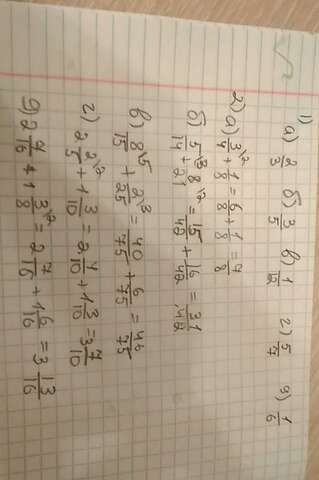 1)
а) 2/3 б) 3/5 в) 1/12 г) 5/7 д) 1/6
2) а) 3/4\2 + 1/8 = 6/8 + 1/8 = 7/8
б) 5/14\3 + 8/21\2 = 15/42 + 16/42 = 31/42
в) 8/15\5 + 2/25\3 = 40/75 + 6/75 = 46/75
г) 2 2/5\2 + 1 3/10 = 2 4/10 + 1 3/10 = 3 7/10
д) 2 7/16 + 1 3/8\2 = 2 7/16 + 1 6/16 = 3 13/16